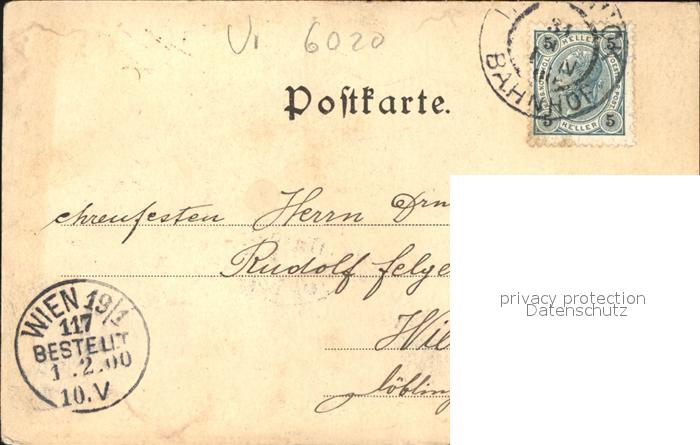 Vi 6020
5 HELLER 5
BAHNHOF
5 HELLER 5
Postkarte.
ehrenfesten Herrn
Rudolf
privacy protection
Datenschutz
WIEN 19/1
117
BESTELLT
1.2.00
10.V